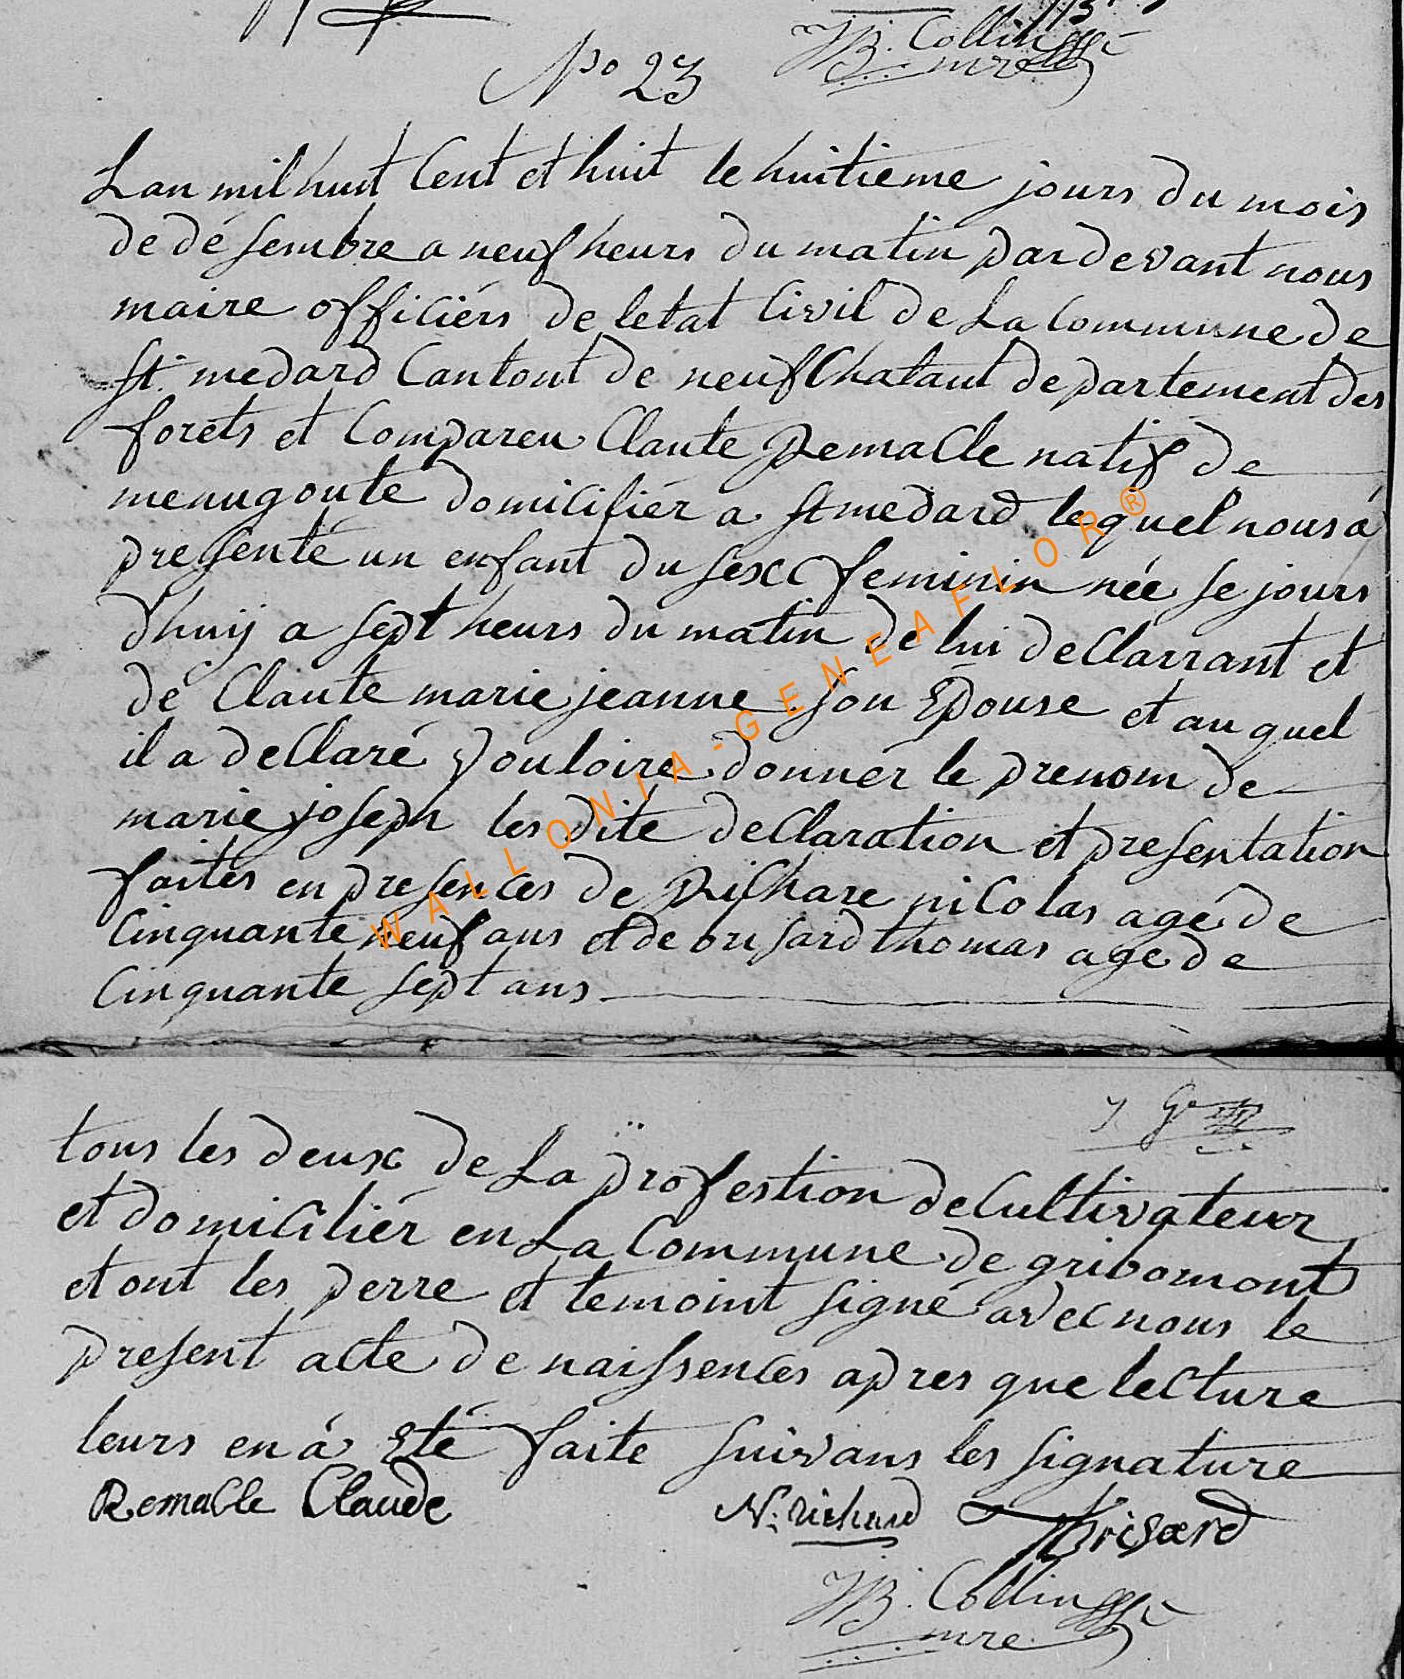 JB. Collin
mre
No 23
Lan mil huit Cent et huit le huitieme jours du mois
de désembre a neuf heurs du matin pardevant nous
maire officiérs de letat Civil de La Commune de
St. medard Cantont de neufChataut departement des
foréts et Compareu Claute Remacle natif de
menugoute domicifiér a St medard lequel nous á
presenté un enfant du sexe feminin née se jours
dhuij a sept heurs du matin de lui decllarrant et
de Claute marie jeanne son Epouse et au quel
il a decllaré vouloire donnér le prenom de
marie joseph les dite decllaration et presentation
faités en presences de Richare nicolas agé de
Cinquante neuf ans et de brisard thomas age de
Cinquante sept ans
WALLONIA-GENEAFLOR®
tous les deux de La profestion de Cultivateur
et domiciliér en La Commune de gribomont
et ont les perre et temoint signé avec nous le
present acte de naissences apres que lecture
leurs en á Eté faite suivans les signature
Remacle Claude
N. richard
Brisard
JB. Collin
mre